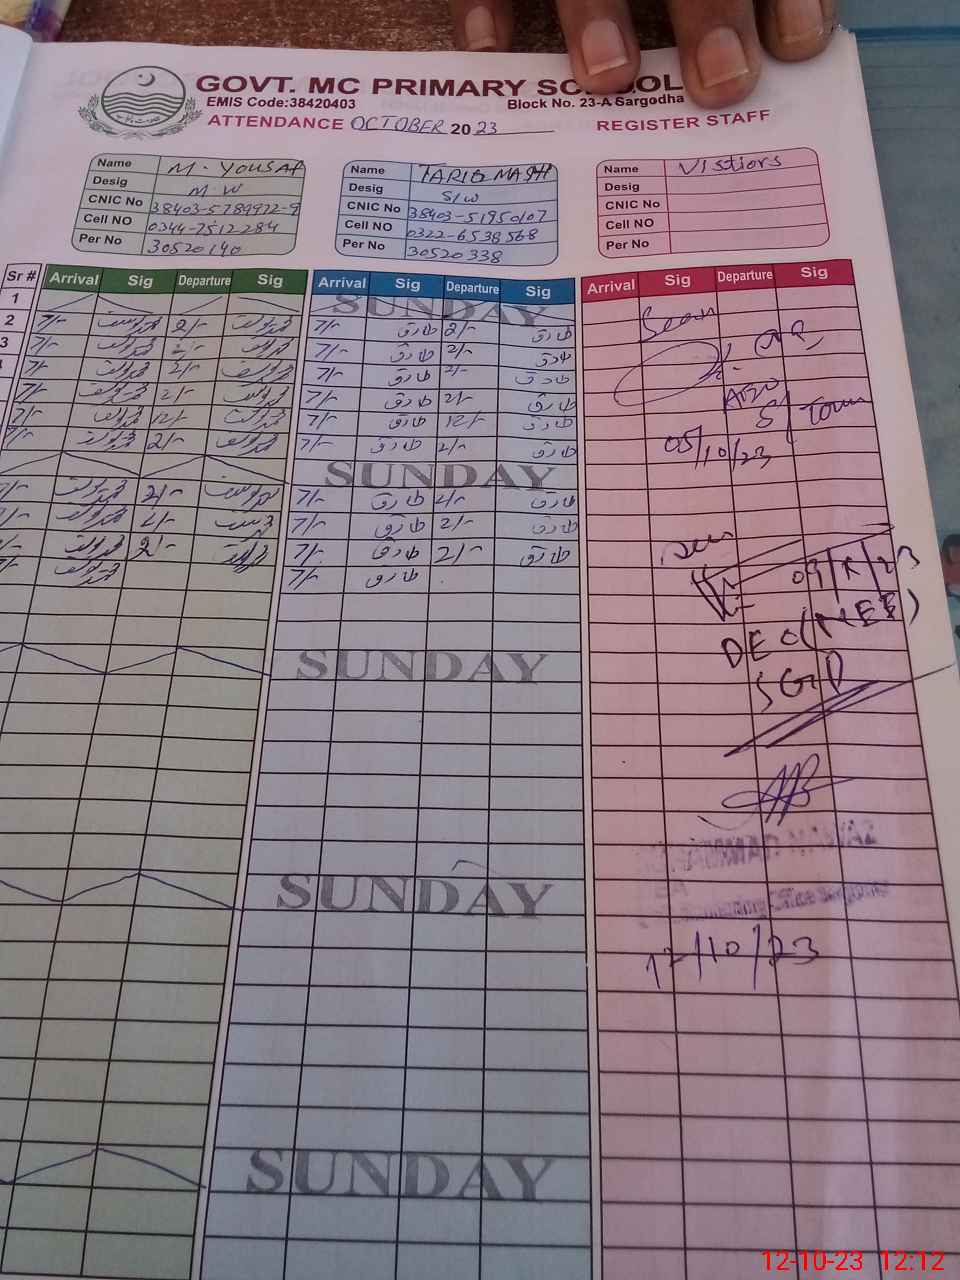 GOVT. MC PRIMARY SCHOOL
EMIS Code:38420403 Block No. 23-A Sargodha
ATTENDANCE OCTOBER 2023 REGISTER STAFF
Name M. YOUSAF
Desig M.W
CNIC No 38403-5789972-9
Cell NO 0344-7512284
Per No 30520140
Name TARIQ MASIH
Desig S/W
CNIC No 38403-51950107
Cell NO 0322-6538568
Per No 30520338
Name Vistiors
Desig
CNIC No
Cell NO
Per No
Sr # Arrival Sig Departure Sig Arrival Sig Departure Sig Arrival Sig Departure Sig
1 SUNDAY
2 7/- محمد یوسف 2/- محمد یوسف 7/- طارق 2/- طارق
3 7/- محمد یوسف 2/- محمد یوسف 7/- طارق 2/- طارق
7/- محمد یوسف 2/- محمد یوسف 7/- طارق 2/- طارق
7/- محمد یوسف 2/- محمد یوسف 7/- طارق 2/- طارق
7/- محمد یوسف 12/- محمد یوسف 7/- طارق 12/- طارق
7/- محمد یوسف 2/- محمد یوسف 7/- طارق 2/- طارق
SUNDAY
7/- محمد یوسف 2/- محمد یوسف 7/- طارق 2/- طارق
7/- محمد یوسف 2/- محمد یوسف 7/- طارق 2/- طارق
7/- محمد یوسف 2/- محمد یوسف 7/- طارق 2/- طارق
7/- محمد یوسف 7/- طارق
SUNDAY
SUNDAY
SUNDAY
Seen
05/10/23
Seen
DEO(MEE)
SGD
12/10/23
12-10-23 12:12